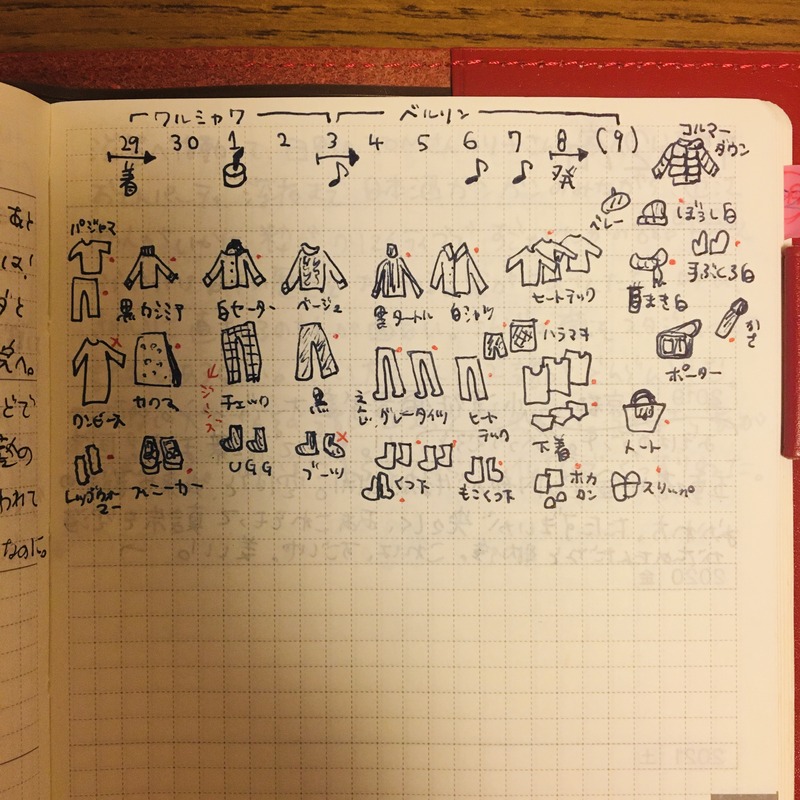 ワルシャワ ベルリン
29 30 1 2 3 4 5 6 7 8 (9)
着 発
コルマー
ダウン
ベレー ぼうし白
手ぶくろ白
首まき白
かさ
ポーター
トート
スリッパ
パジャマ
黒カシミア 白セーター ベージュ 黒タートル 白シャツ ヒートテック
ハラマキ
ワンピース チェック 黒 グレータイツ ヒート
テック
ジーンズ
下着
レッグウォー
マー
スニーカー UGG ブーツ くつ下 もこくつ下 ホカ
ロン
あと
は!
ダと
えへ。
どで
われて
なのに。